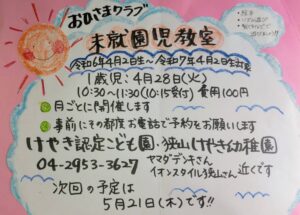 おひさまクラブ
未就園児教室
令和6年4月2日生〜令和7年4月2日生対象
1歳児:4月28日(火)
10:30〜11:30(10:15受付) 費用100円
月ごとに開催します
事前にその都度お電話で予約をお願いします
けやき認定こども園・狭山けやき幼稚園
04-2953-3627
ヤマダデンキさん
イオンスタイル狭山さん
近くです
次回の予定は
5月21日(木)です!!